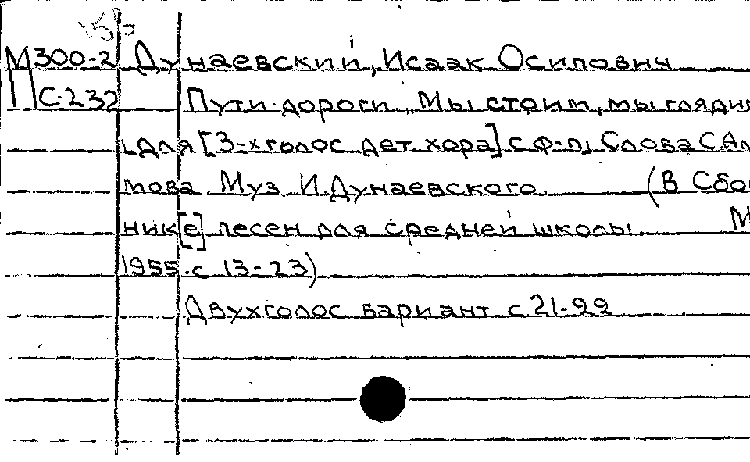 М300-2 Дунаевский, Исаак Осипович
П С-232 Пути-дороги. Мы стоим, мы глядим
для [3-хголос дет. хора] с ф-п. Слова С Ал
това Муз. И. Дунаевского. (В Сбор
ник[е] песен для средней школы. М
1955. с 13-23)
Двухголос вариант с 21-22